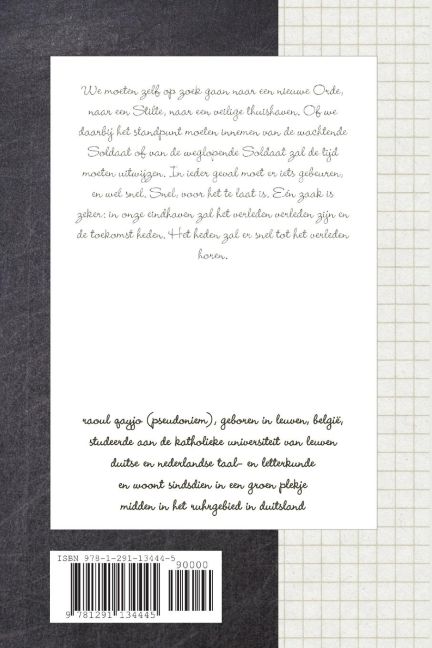 We moeten zelf op zoek gaan naar een nieuwe Orde,
naar een Stilte, naar een veilige thuishaven. Of we
daarbij het standpunt moeten innemen van de wachtende
Soldaat of van de weglopende Soldaat zal de tijd
moeten uitwijzen. In ieder geval moet er iets gebeuren,
en wel snel. Snel, voor het te laat is. Eén zaak is
zeker: in onze eindhaven zal het verleden verleden zijn en
de toekomst heden. Het heden zal er snel tot het verleden
horen.
raoul qayjo (pseudoniem), geboren in leuven, belgië,
studeerde aan de katholieke universiteit van leuven
duitse en nederlandse taal- en letterkunde
en woont sindsdien in een groen plekje
midden in het ruhrgebied in duitsland
ISBN 978-1-291-13444-5
90000
9 781291 134445